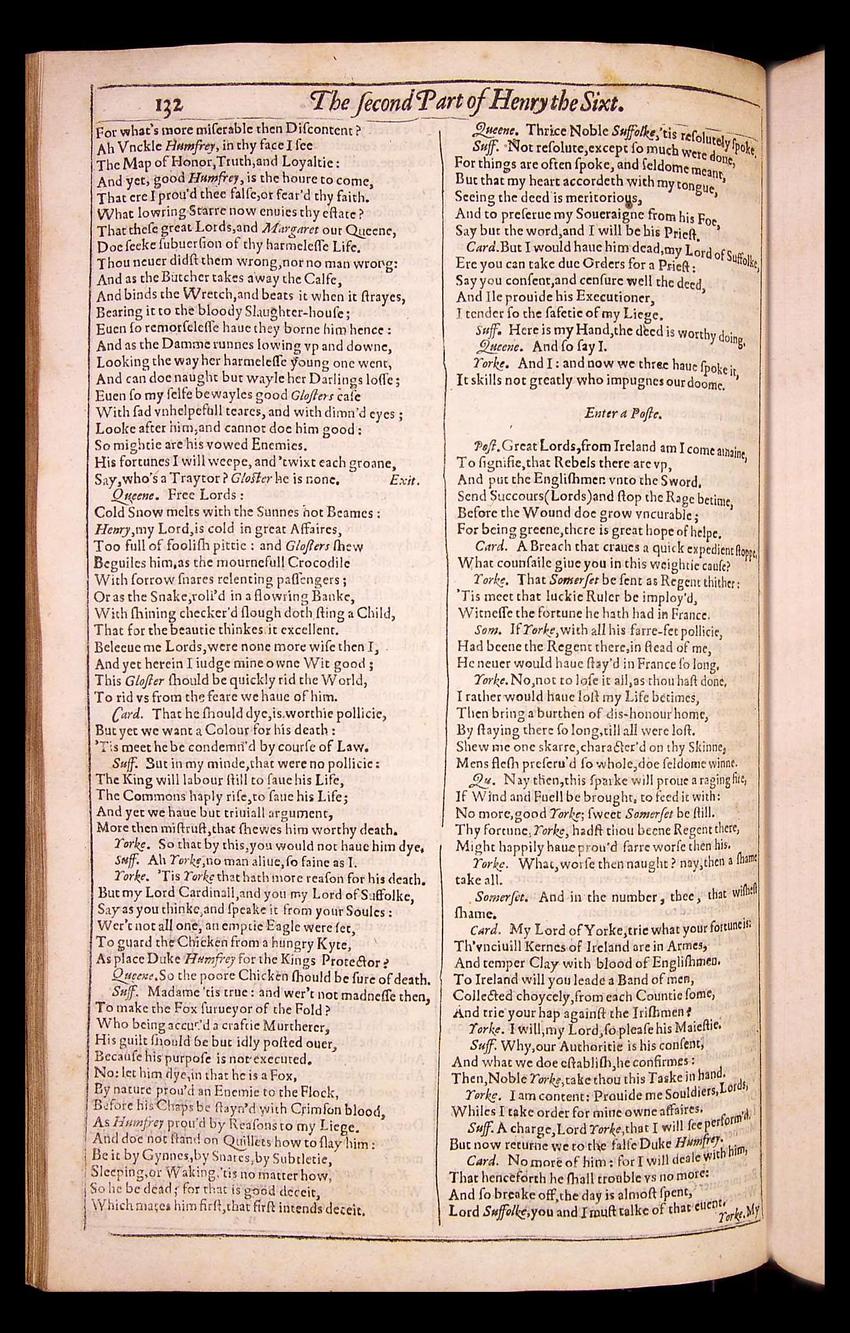 132
The ſecond Part of Henry the Sixt.
For what's more miſerable then Diſcontent?
Ah Vnckle Humfrey, in thy face I ſee
The Map of Honor, Truth, and Loyaltie:
And yet, good Humfrey, is the houre to come,
That ere I prou'd thee falſe, or fear'd thy faith.
What lowring Starre now enuies thy eſtate?
That theſe great Lords, and Margaret our Queene,
Doe ſeeke ſubuerſion of thy harmeleſſe Life.
Thou neuer didſt them wrong, nor no man wrong:
And as the Butcher takes away the Calfe,
And binds the Wretch, and beats it when it ſtrayes,
Bearing it to the bloody Slaughter-houſe;
Euen ſo remorſeleſſe haue they borne him hence:
And as the Damme runnes lowing vp and downe,
Looking the way her harmeleſſe young one went,
And can doe naught but wayle her Darlings loſſe;
Euen ſo my ſelfe bewayles good Gloſters caſe
With ſad vnhelpefull teares, and with dimn'd eyes;
Looke after him, and cannot doe him good:
So mightie are his vowed Enemies.
His fortunes I will weepe, and 'twixt each groane,
Say, who's a Traytor? Gloſter he is none. Exit.
Queene. Free Lords:
Cold Snow melts with the Sunnes hot Beames:
Henry, my Lord, is cold in great Affaires,
Too full of fooliſh pittie: and Gloſters ſhew
Beguiles him, as the mournefull Crocodile
With ſorrow ſnares relenting paſſengers;
Or as the Snake, roll'd in a flowring Banke,
With ſhining checker'd ſlough doth ſting a Child,
That for the beautie thinkes it excellent.
Beleeue me Lords, were none more wiſe then I,
And yet herein I iudge mine owne Wit good;
This Gloſter ſhould be quickly rid the World,
To rid vs from the feare we haue of him.
Card. That he ſhould dye, is worthie pollicie,
But yet we want a Colour for his death:
'Tis meet he be condemn'd by courſe of Law.
Suff. But in my minde, that were no pollicie:
The King will labour ſtill to ſaue his Life,
The Commons haply riſe, to ſaue his Life;
And yet we haue but triuiall argument,
More then miſtruſt, that ſhewes him worthy death.
Yorke. So that by this, you would not haue him dye.
Suff. Ah Yorke, no man aliue, ſo faine as I.
Yorke. 'Tis Yorke that hath more reaſon for his death.
But my Lord Cardinall, and you my Lord of Suffolke,
Say as you thinke, and ſpeake it from your Soules:
Wer't not all one, an emptie Eagle were ſet,
To guard the Chicken from a hungry Kyte,
As place Duke Humfrey for the Kings Protector?
Queene. So the poore Chicken ſhould be ſure of death.
Suff. Madame 'tis true: and wer't not madneſſe then,
To make the Fox ſurueyor of the Fold?
Who being accus'd a craftie Murtherer,
His guilt ſhould be but idly poſted ouer,
Becauſe his purpoſe is not executed.
No: let him dye, in that he is a Fox,
By nature prou'd an Enemie to the Flock,
Before his Chaps be ſtayn'd with Crimſon blood,
As Humfrey prou'd by Reaſons to my Liege.
And doe not ſtand on Quillets how to ſlay him:
Be it by Gynnes, by Snares, by Subtletie,
Sleeping, or Waking, 'tis no matter how,
So he be dead; for that is good deceit,
Which mates him firſt, that firſt intends deceit.
Queene. Thrice Noble Suffolke, 'tis reſolutely ſpoke.
Suff. Not reſolute, except ſo much were done,
For things are often ſpoke, and ſeldome meant,
But that my heart accordeth with my tongue,
Seeing the deed is meritorious,
And to preſerue my Soueraigne from his Foe,
Say but the word, and I will be his Prieſt.
Card. But I would haue him dead, my Lord of Suffolke,
Ere you can take due Orders for a Prieſt:
Say you conſent, and cenſure well the deed,
And Ile prouide his Executioner,
I tender ſo the ſafetie of my Liege.
Suff. Here is my Hand, the deed is worthy doing.
Queene. And ſo ſay I.
Yorke. And I: and now we three haue ſpoke it,
It skills not greatly who impugnes our doome.
Enter a Poſte.
Poſt. Great Lords, from Ireland am I come amaine,
To ſignifie, that Rebels there are vp,
And put the Engliſhmen vnto the Sword.
Send Succours (Lords) and ſtop the Rage betime,
Before the Wound doe grow vncurable;
For being greene, there is great hope of helpe.
Card. A Breach that craues a quick expedient ſtoppe.
What counſaile giue you in this weightie cauſe?
Yorke. That Somerſet be ſent as Regent thither:
'Tis meet that luckie Ruler be imploy'd,
Witneſſe the fortune he hath had in France.
Som. If Yorke, with all his farre-fet pollicie,
Had beene the Regent there, in ſtead of me,
He neuer would haue ſtay'd in France ſo long.
Yorke. No, not to loſe it all, as thou haſt done.
I rather would haue loſt my Life betimes,
Then bring a burthen of dis-honour home,
By ſtaying there ſo long, till all were loſt.
Shew me one skarre, character'd on thy Skinne,
Mens fleſh preſeru'd ſo whole, doe ſeldome winne.
Qu. Nay then, this ſparke will proue a raging fire,
If Wind and Fuell be brought, to feed it with:
No more, good Yorke; ſweet Somerſet be ſtill.
Thy fortune, Yorke, hadſt thou beene Regent there,
Might happily haue prou'd farre worſe then his.
Yorke. What, worſe then naught? nay, then a ſhame
take all.
Somerſet. And in the number, thee, that wiſheſt
ſhame.
Card. My Lord of Yorke, trie what your fortune is:
Th'vnciuill Kernes of Ireland are in Armes,
And temper Clay with blood of Engliſhmen.
To Ireland will you leade a Band of men,
Collected choycely, from each Countie ſome,
And trie your hap againſt the Iriſhmen?
Yorke. I will, my Lord, ſo pleaſe his Maieſtie.
Suff. Why, our Authoritie is his conſent,
And what we doe eſtabliſh, he confirmes:
Then, Noble Yorke, take thou this Taske in hand.
Yorke. I am content: Prouide me Souldiers, Lords,
Whiles I take order for mine owne affaires.
Suff. A charge, Lord Yorke, that I will ſee perform'd.
But now returne we to the falſe Duke Humfrey.
Card. No more of him: for I will deale with him,
That henceforth he ſhall trouble vs no more:
And ſo breake off, the day is almoſt ſpent,
Lord Suffolke, you and I muſt talke of that euent.
Yorke. My